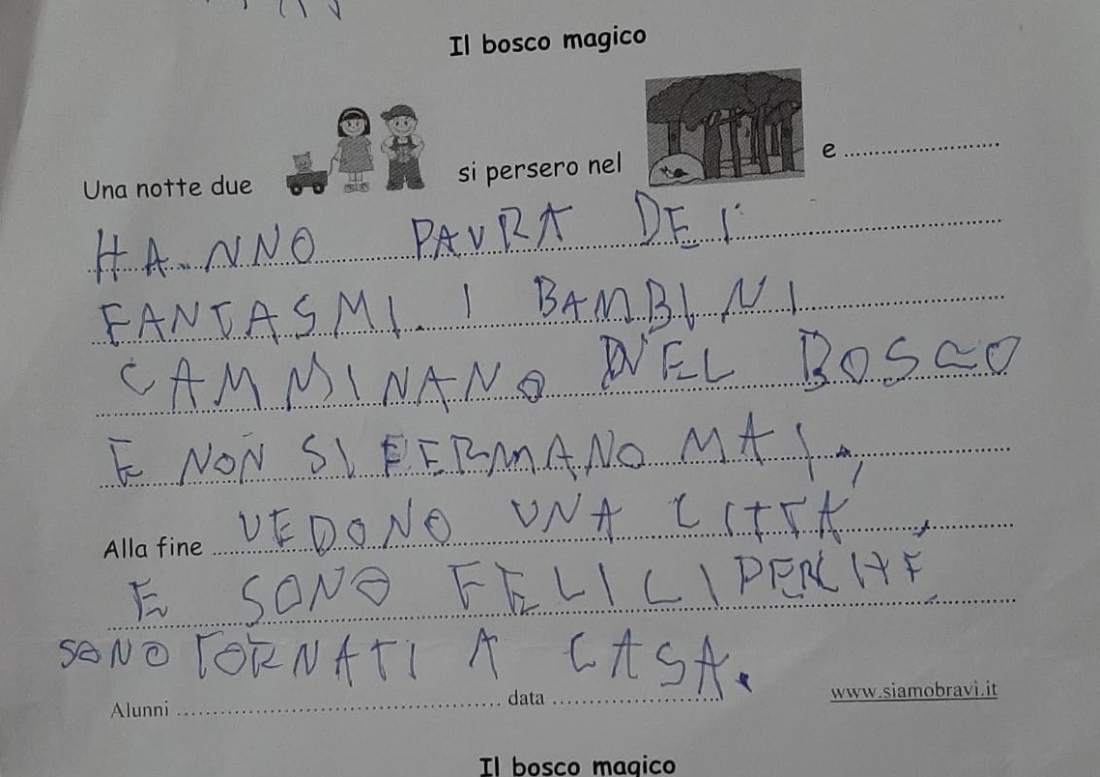 Il bosco magico
Una notte due si persero nel e
HANNO PAURA DEI
FANTASMI. I BAMBINI
CAMMINANO NEL BOSCO
E NON SI FERMANO MAI.
Alla fine VEDONO UNA CITTA',
E SONO FELICI PERCHE
SONO TORNATI A CASA.
Alunni data www.siamobravi.it
Il bosco magico